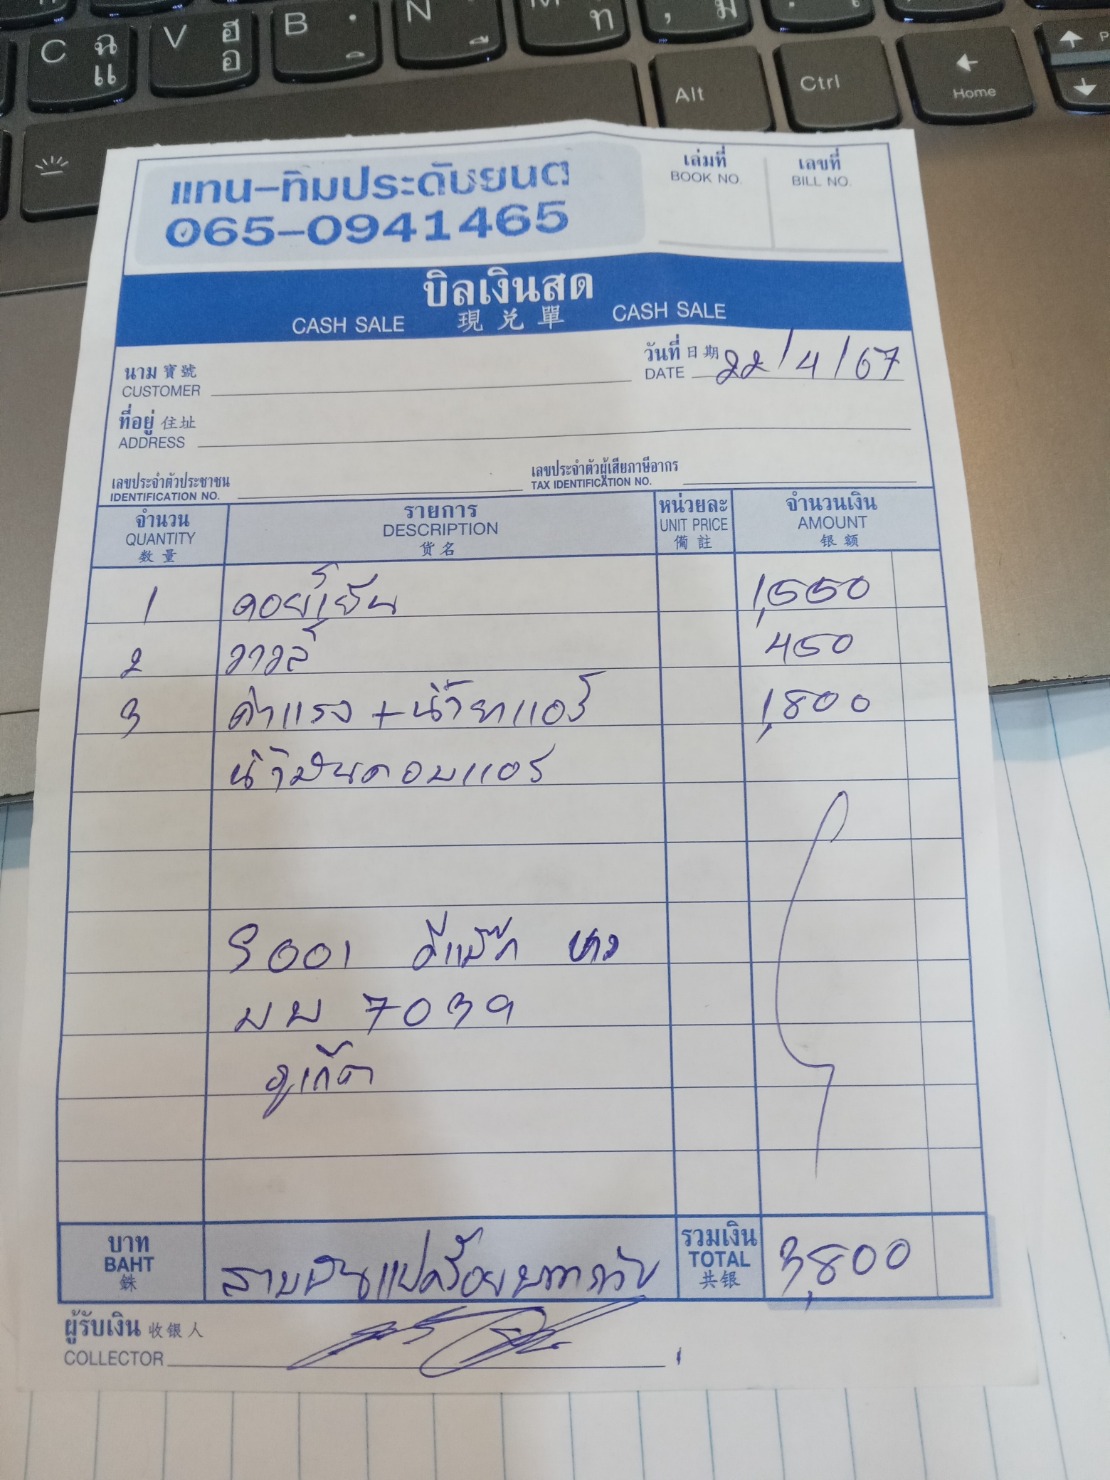 C ฉ แ
V ฮ อ
B
N
M ท
, ม
Alt
Ctrl
Home
แทน-ทิมประดับยนต
065-0941465
เล่มที่ เลขที่
BOOK NO. BILL NO.
บิลเงินสด
CASH SALE 現兑單 CASH SALE
นาม 寳號
CUSTOMER
วันที่ 日期 22/4/67
DATE
ที่อยู่ 住址
ADDRESS
เลขประจำตัวประชาชน เลขประจำตัวผู้เสียภาษีอากร
IDENTIFICATION NO. TAX IDENTIFICATION NO.
จำนวน รายการ หน่วยละ จำนวนเงิน
QUANTITY DESCRIPTION UNIT PRICE AMOUNT
数量 货名 備註 银额
1 คอย์เย็น 1,550
2 วาวล์ 450
3 ค่าแรง + น้ำยาแอร์ 1,800
น้ำมันคอมแอร์
9001 ดีแม๊ก ขาว
บบ 7039
ภูเก็ต
บาท สามพันแปดร้อยบาทถ้วน รวมเงิน 3,800
BAHT TOTAL
銖 共银
ผู้รับเงิน 收银人
COLLECTOR